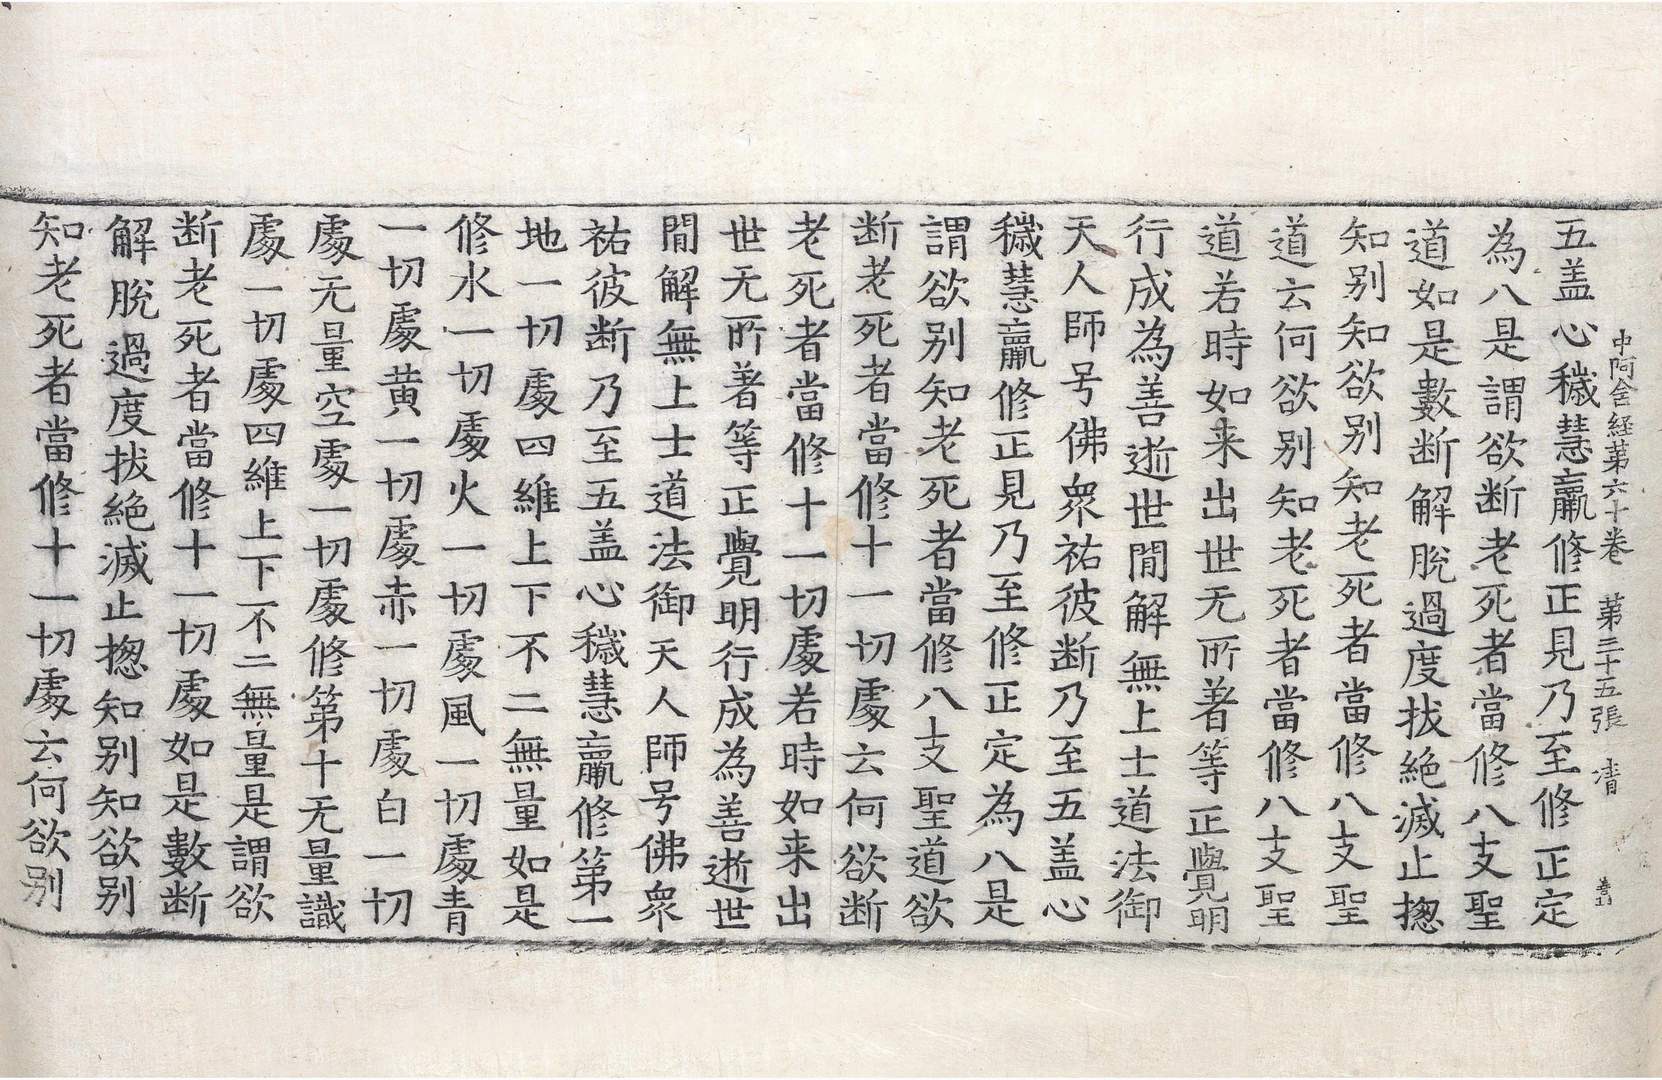 中阿含経第六十卷 第三十五張 清
五盖心穢慧羸修正見乃至修正定
為八是謂欲断老死者當修八支聖
道如是數断解脫過度拔絶滅止揔
知别知欲别知老死者當修八支聖
道云何欲别知老死者當修八支聖
道若時如来出世无所著等正覺明
行成為善逝世閒解無上士道法御
天人師号佛衆祐彼断乃至五盖心
穢慧羸修正見乃至修正定為八是
謂欲别知老死者當修八支聖道欲
断老死者當修十一切處云何欲断
老死者當修十一切處若時如来出
世无所著等正覺明行成為善逝世
閒解無上士道法御天人師号佛衆
祐彼断乃至五盖心穢慧羸修第一
地一切處四維上下不二無量如是
修水一切處火一切處風一切處青
一切處黄一切處赤一切處白一切
處无量空處一切處修第十无量識
處一切處四維上下不二無量是謂欲
断老死者當修十一切處如是數断
解脫過度拔絶滅止揔知别知欲别
知老死者當修十一切處云何欲别